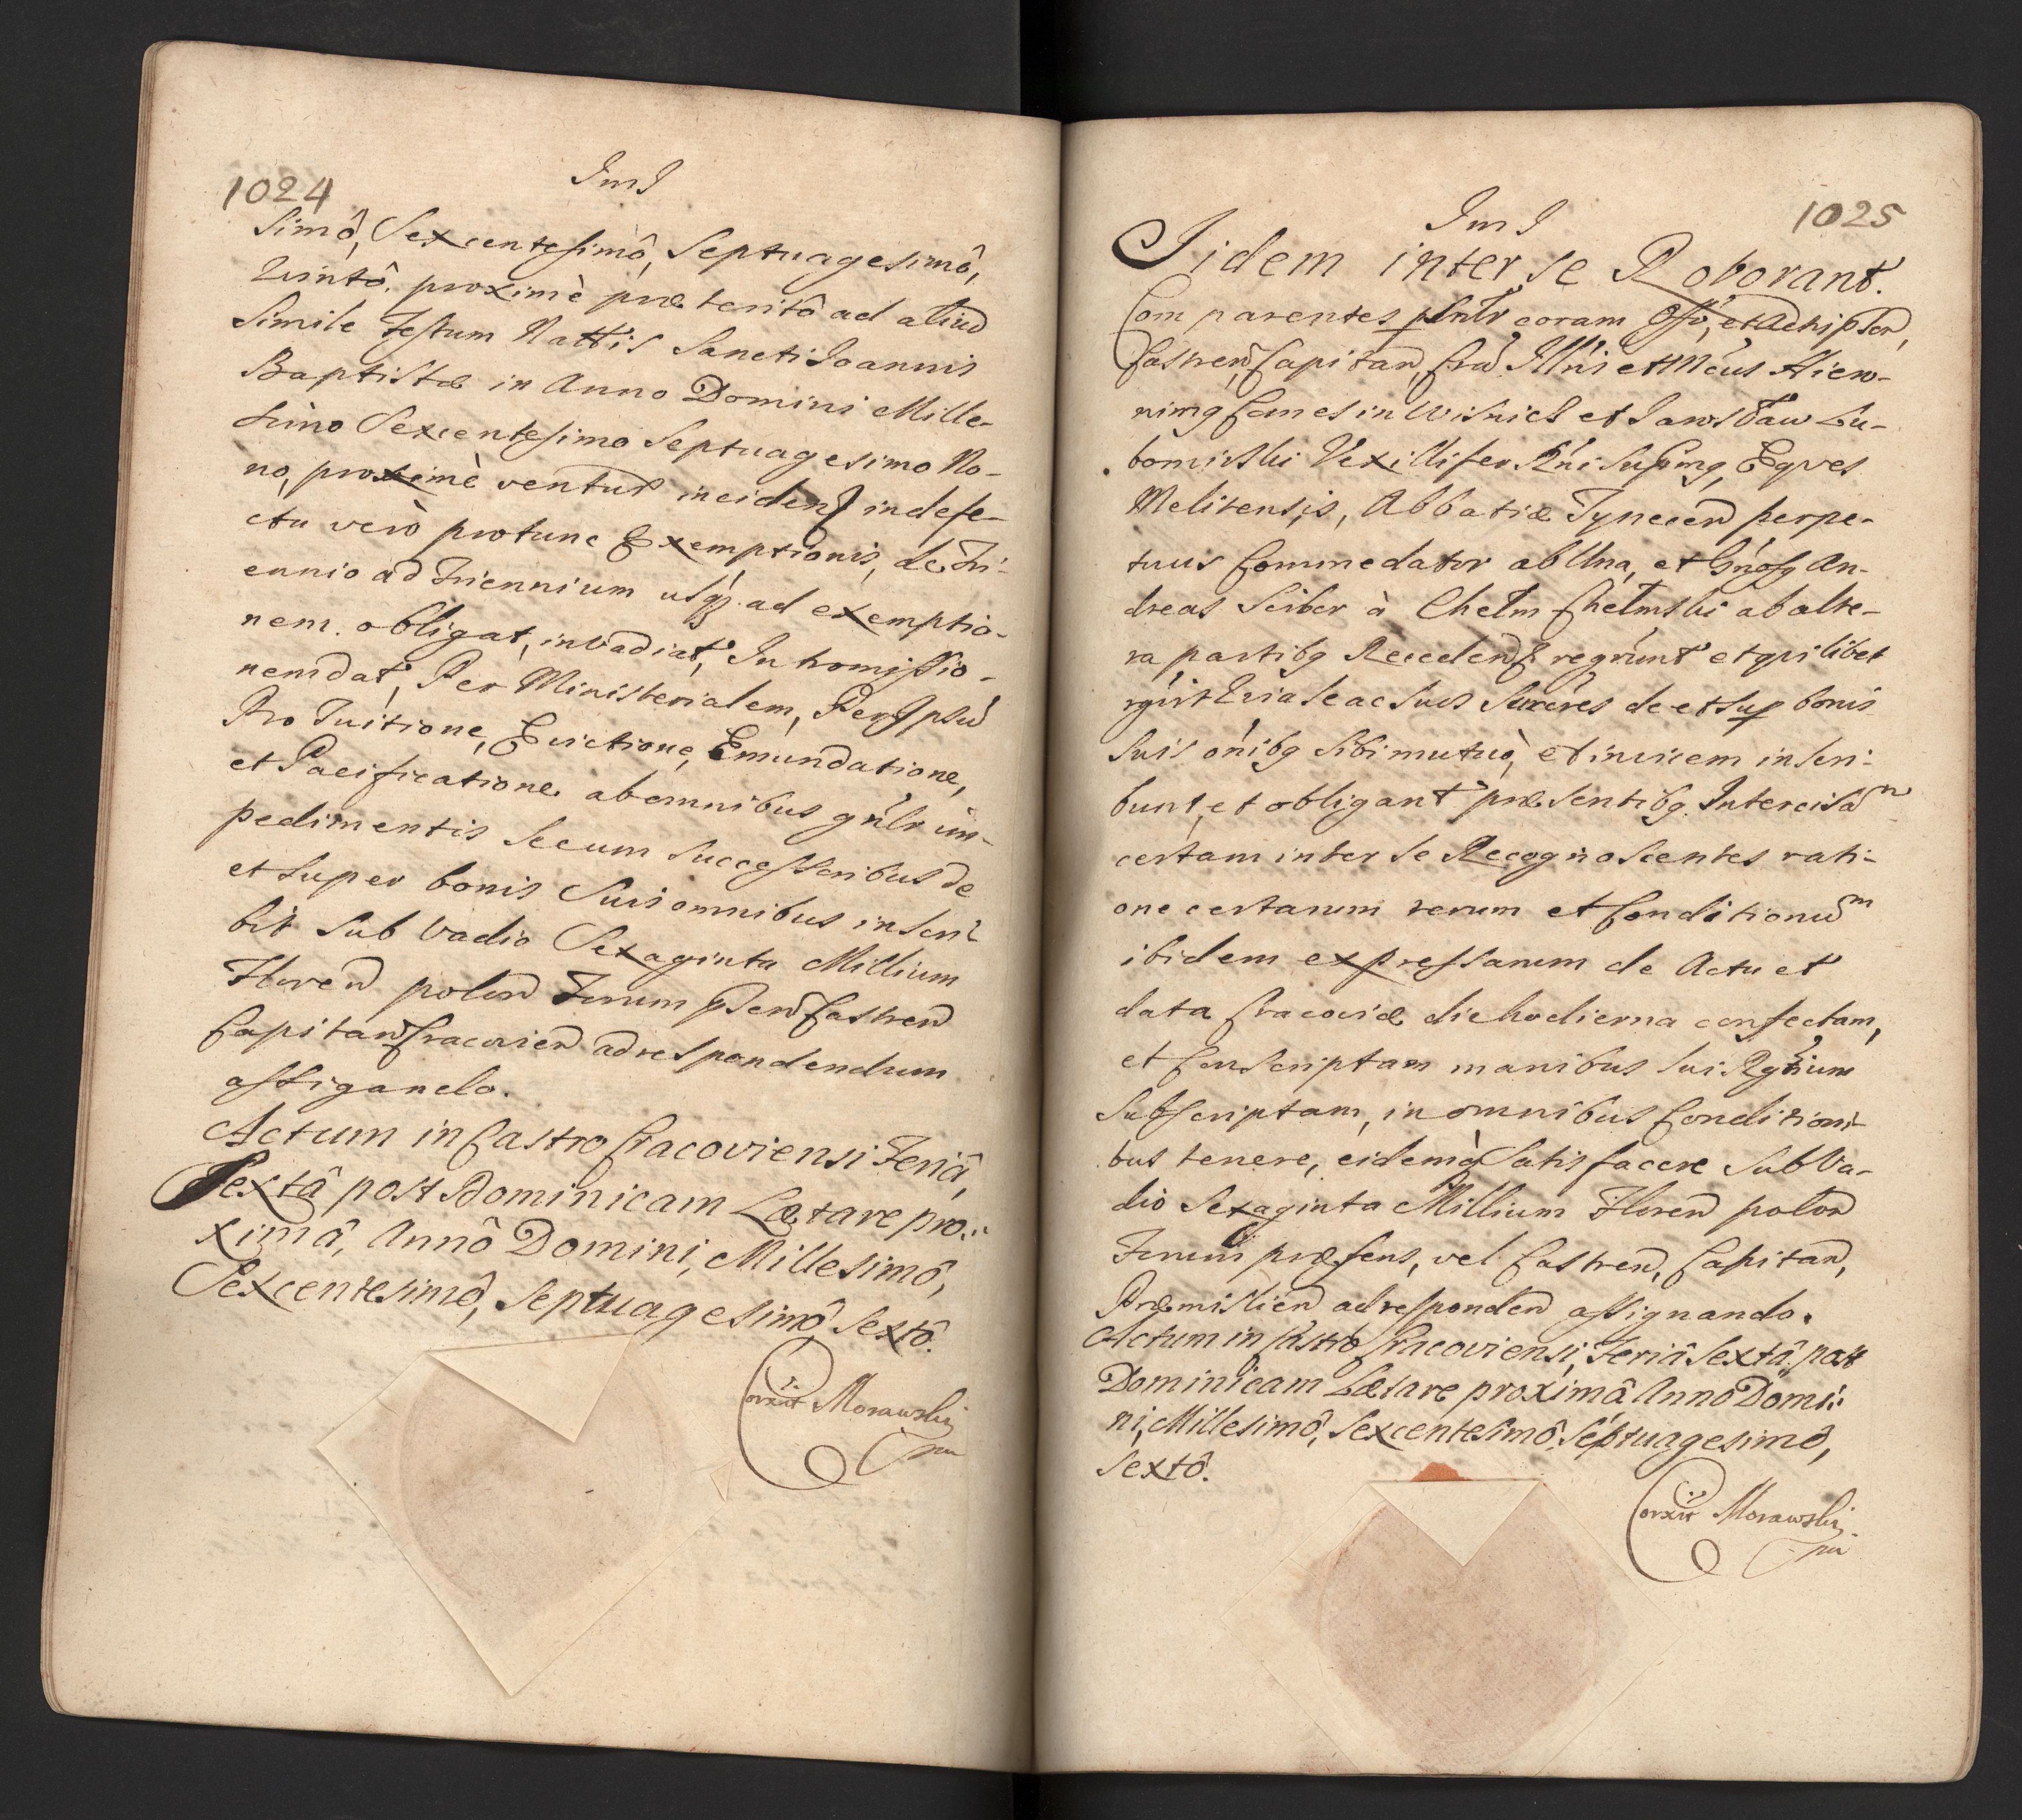 1024
ImJ
simô, Sexcentesimô, Septuagesimô,
Quintô, proximè præteritô ad aliud
Simile Festum Nattis Sancti Joannis
Baptistæ in Anno Domini Mille-
simo Sexcentesimo Septuagesimo No-
no, proximè ventur incident in defe-
ctu verò protunc Exemptionis, de Tri-
ennio ad Triennium usq3 ad exemptio-
nem. obligat, invadiat, Intromissio-
nem dat, Per Ministerialem, Per Ipsu
Pro Tuitione, Evictione, Emundatione,
et Pacificatione ab omnibus gnlr im-
pedimentis Secum Successoribus de
et Super bonis Suis omnibus inscri-
bit Sub Vadio Sexaginta Millium
Floren polon Forum Castren
Capitan Cracovien ad respondendum
assigando.
Actum in Castro Cracoviensi Feriâ,
Sextâ post Dominicam Lætare pro..
ximâ, Annô Domini, Millesimô,
Sexcentesimô, Septuagesimô Sextô.
Corxit Morawski
mp
ImJ
1025
Iidem inter se Roborant.
Comparentes psnlr coram Offo, et Actis pser,
Castren, Capitan, Cra Illris et Mcus Hiero-
nimg Comes in Wisnicz et Jaroslaw Lu-
bomirski Vexillifer Rni Supmg, Eqves
Melitensis, Abbatiæ Tynecen perpe-
tuus Commedator ab Una, et Gnosg An-
dreas Sciber à Chełm Chełmski ab alte-
ra, partibg Recedent regrunt et qvilibet
rgvit Qvia se ac Suos Succres de et sup bonis
Suis onibg Sibi mutuò, et invicem inscri-
bunt, et obligant præsentibg. Intercisam
certam inter se Recognoscentes rati-
one certarum rerum et Conditionum
ibidem expressarum de Actu et
data Cracoviæ die hodierna confectam,
et Conscriptam manibus Suis Rgnium
Subscriptam, in omnibus Conditioni-
bus tenere, eidemq Satisfacere Sub Va-
dio Sexaginta Millium Floren polon
Forum præsens, vel Castren, Capitan,
Præmislien ad responden assignando.
Actum in Castro Cracoviensi, Feriâ Sextâ post
Dominicam Lætare proximâ Anno Domi..
ni, Millesimô, Sexcentesimô, Septuagesimô,
Sextô.
Corxit Morawski
mp